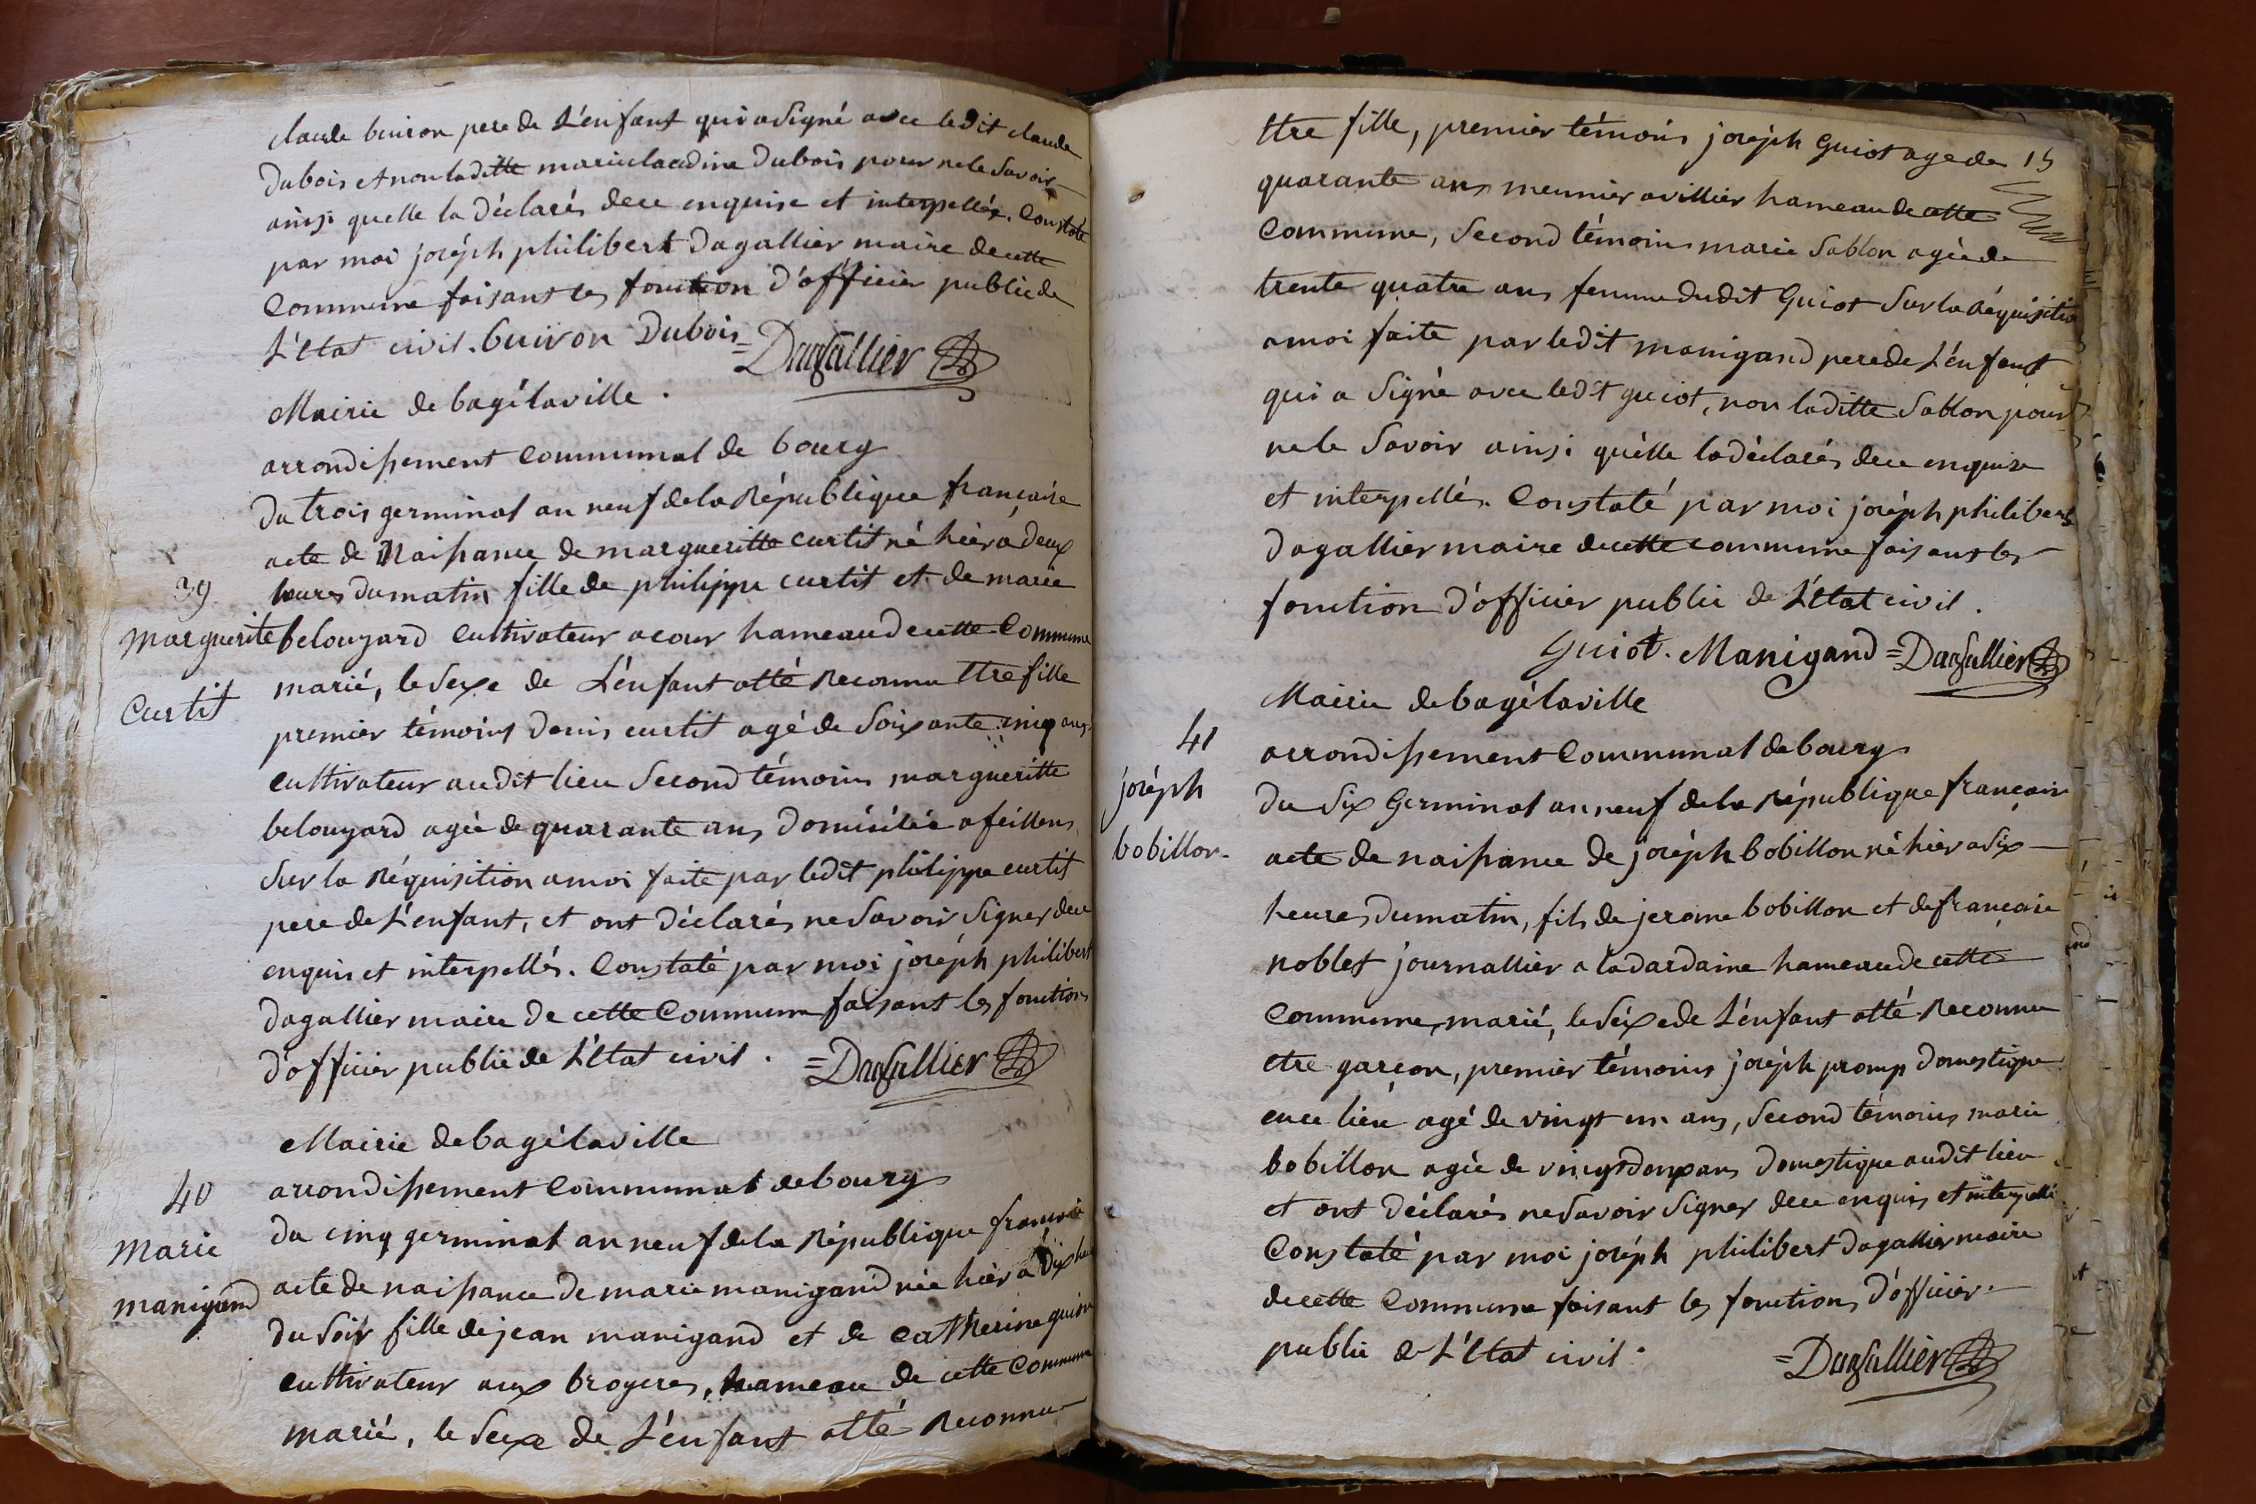 claude buiron pere de L'enfant qui a Signé avec ledit claude
Dubois et non laditte marie claudine Dubois pour ne le Savoir
ainsi quelle la déclarés dece enquise et interpellée. Constaté
par moi joséph philibert Dagallier maire de cette
Commune faisant les fonction d'officier public de
L'Etat civil. buiron Dubois =Dagallier
Mairie de bagélaville.
arrondissement Communal de bourg
Du trois germinal an neuf de la République française
acte de Naissance de margueritte curtit né hier à deux
39
heures du matin fille de philippe curtit et de marie
Marguerite
belouzard Cultivateur a cour hameau de cette Commune
marié, le Sexe de L'énfant atté Reconnu Etre fille
Curtit
premier témoins Denis curtit agé de Soixante cinq ans
cultivateur audit lieu Second témoins margueritte
belouzard agée de quarante ans Domiciliée a feillens
Sur la Réquisition a moi faite par ledit philippe curtit
pere de L'enfant, et ont déclarés ne Savoir Signer dece
enquis et interpellés. Constaté par moi joséph philibert
Dagallier maire de cette Commune faisant les fonctions
d'officier public de L'Etat civil. =Dagallier
Mairie de bagélaville
40
arrondissement Communal de bourg
Du cinq germinal an neuf de la République française
Marie
acte de naissance de marie manigand née hier a Dix heu
manigand
du Soir fille de jean manigand et de Catherine
cultivateur aux broyeres, hameau de cette Commune
marié, le Sexe de L'énfant atté Reconnu
Etre fille, premier témoins joséph Guiot age de 15
quarante ans meunier a villier hameau de cette
Commune, Second témoins marie Sablon agée de
trente quatre ans femme dudit Guiot Sur la Réquisition
a moi faite par ledit manigand pere de L'énfant
qui a Signé avec ledit guiot, non laditte Sablon pour
ne le Savoir ainsi quélle la déclarés dece enquise
et interpellés. Constaté par moi joséph philibert
Dagallier maire de cette commune faisant les
fonction d'officier public de L'Etat civil.
Guiot. Manigand =Dagallier
Mairie de bagélaville
41
arrondissement Communal de bourg
joséph
Du Six Germinal an neuf de la République française
bobillon.
acte de naissance de joséph bobillon né hier a Six
heures du matin, fils de jerome bobillon et de françoise
noblet journallier a la dardaine hameau de cette
Commune, marié, le Séxe de L'énfant atté Reconnu
etre garçon, premier témoins joséph promp Domestique
en ce lieu agé de vingt un ans, Second témoins marie
bobillon agée de vingt deux ans Domestique audit lieu
et ont déclarés ne Savoir Signer dece enquis et interpellé
Constaté par moi joséph philibert Dagallier maire
de cette Commune faisant les fonctions d'officier
public de L'Etat civil. =Dagallier